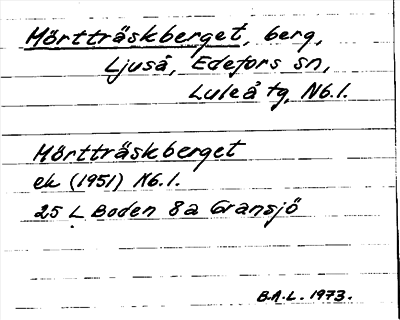 Mörtträskberget, berg,
Ljuså, Edefors sn,
Luleå tg, Nb.l.
Mörtträskberget
ek (1951) Nb.l.
25 L Boden 8a Gransjö
B.A.L. 1973.